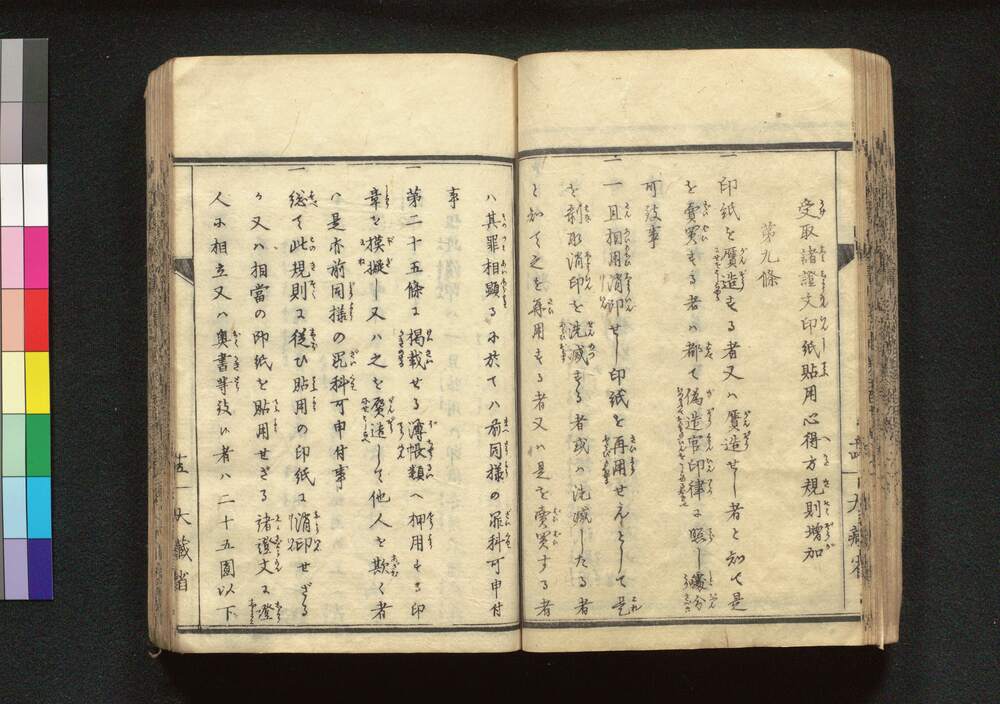 受取諸證文印紙貼用心得方規則増加
第九條
一印紙を贋造する者又ハ贋造せし者と知て是
を賣買する者ハ都て偽造官印律に照し處分
可致事
一一旦相用消印せし印紙を再用せんとして是
を剥取消印を洗滅する者或ハ洗滅したる者
と知て之を再用する者又ハ是を賣買する者
ハ其罪相顕るに於てハ前同様の罪科可申付
事
一第二十五條に掲載せる簿帳類へ押用する印
章を摸擬し又ハ之を贋造して他人を欺く者
ハ是亦前同様の罪科可申付事
一総て此規則に従ひ貼用の印紙に消印せざる
か又ハ相當の印紙を貼用せざる諸證文に證
人に相立又ハ奥書等致い者ハ二十五圓以下
五十一大藏省
大藏省